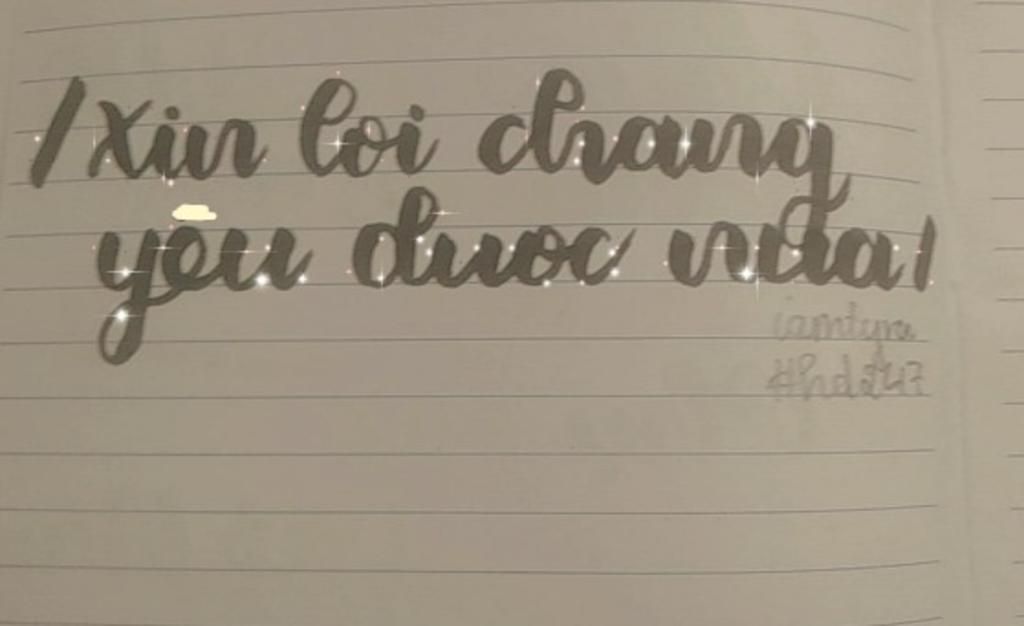 /Xin loi chang
yeu duoc nua/
iamtyra
#hd247